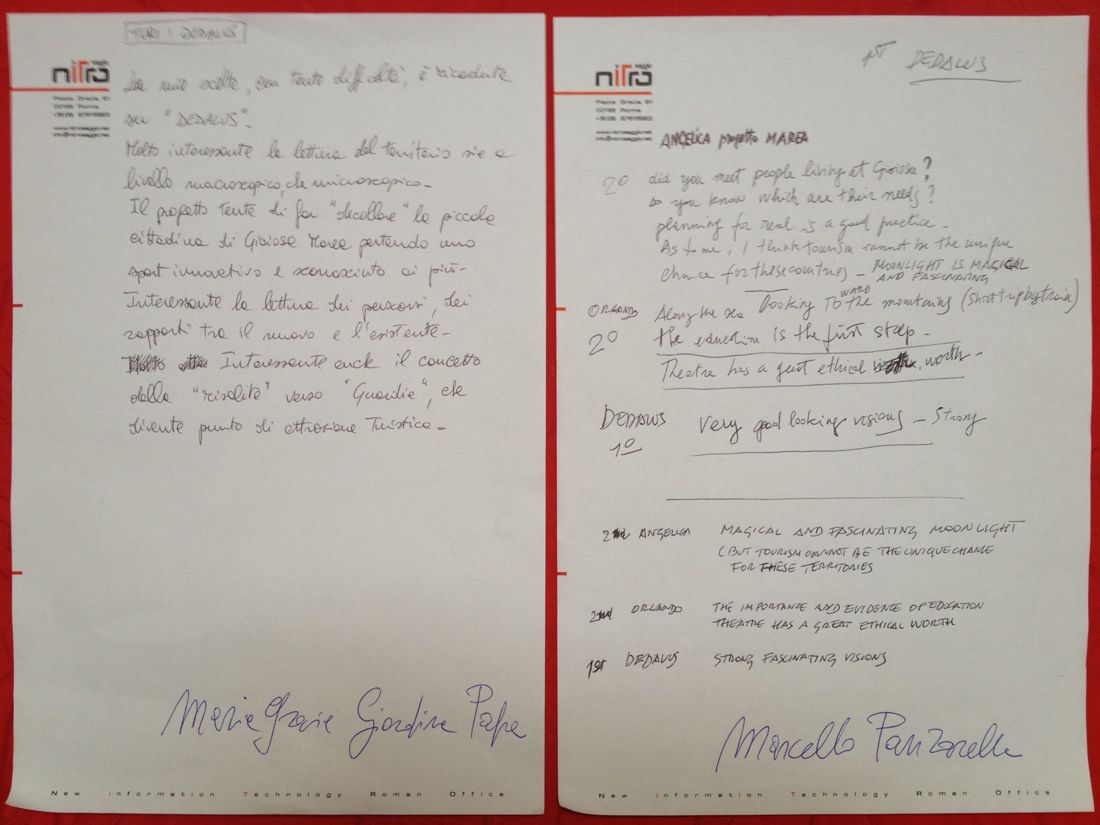 TURI: DEDALUS
nitro
saggio
Piazza Grecia, 61
00196 Roma
www.nitrosaggio.net
info@nitrosaggio.net
La mia scelta, con tante difficoltà, è ricadente
su "DEDALUS".
Molto interessante la lettura del territorio sia a
livello macroscopico, che microscopico.
Il progetto tenta di far "decollare" la piccola
cittadina di Gioiosa Marea portando uno
sport innovativo e sconosciuto ai più.
Interessante la lettura dei percorsi, dei
rapporti tra il nuovo e l'esistente.
Interessante anche il concetto
della "risalita" verso "Guardia", che
diventa punto di attrazione Turistica.
Maria Grazia Giordina Papa
New Information Technology Roman Office
1ST DEDALUS
nitro
saggio
Piazza Grecia, 61
00196 Roma
www.nitrosaggio.net
info@nitrosaggio.net
ANGELICA progetto MAREA
2° did you meet people living at Gioiosa?
Do you know which are their needs?
planning for real is a good practice.
As to me, I think tourism cannot be the unique
chance for these countries - MOONLIGHT IS MAGICAL
AND FASCINATING
ORLANDO Along the sea looking TOWARD the mountains (short trip by train)
2° the education is the first step -
Theatre has a great ethical worth -
DEDALUS Very good looking visions - Strong
1°
2nd ANGELICA MAGICAL AND FASCINATING MOONLIGHT
(BUT TOURISM CANNOT BE THE UNIQUE CHANCE
FOR THESE TERRITORIES
2nd ORLANDO THE IMPORTANCE AND EVIDENCE OF EDUCATION
THEATRE HAS A GREAT ETHICAL WORTH
1ST DEDALUS STRONG FASCINATING VISIONS
Marcello Panzarella
New Information Technology Roman Office